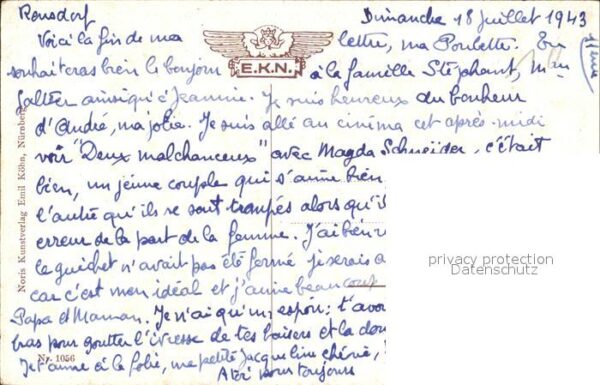 Ronsdorf Dimanche 18 Juillet 1943
Voici la fin de ma lettre, ma Poulette. Tu
souhaiteras bien le bonjour à la famille Stéphant, Mme
E.K.N.
ainsi qu'à Jeannine. Je suis heureux du bonheur
d'André, ma jolie. Je suis allé au cinéma cet après-midi
voir "Deux malchanceux" avec Magda Schneider, c'était
bien, un jeune couple qui s'aime bien
l'autre qu'ils se sont trompés alors qu'i
erreur de la part de la femme. J'ai bien r
le guichet n'avait pas été fermé je serais a
car c'est mon idéal et j'aime beaucoup
Papa et Maman. Je n'ai qu'un espoir: t'avo
bras pour goutter l'ivresse de tes baisers et la dou
Je t'aime à la folie, ma petite Jacqueline chérie,
A toi pour toujours
11ème
Noris Kunstverlag Emil Köhn, Nürnberg
Nr. 1056
privacy protection
Datenschutz